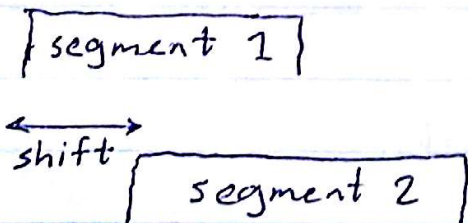 segment 1
shift
segment 2